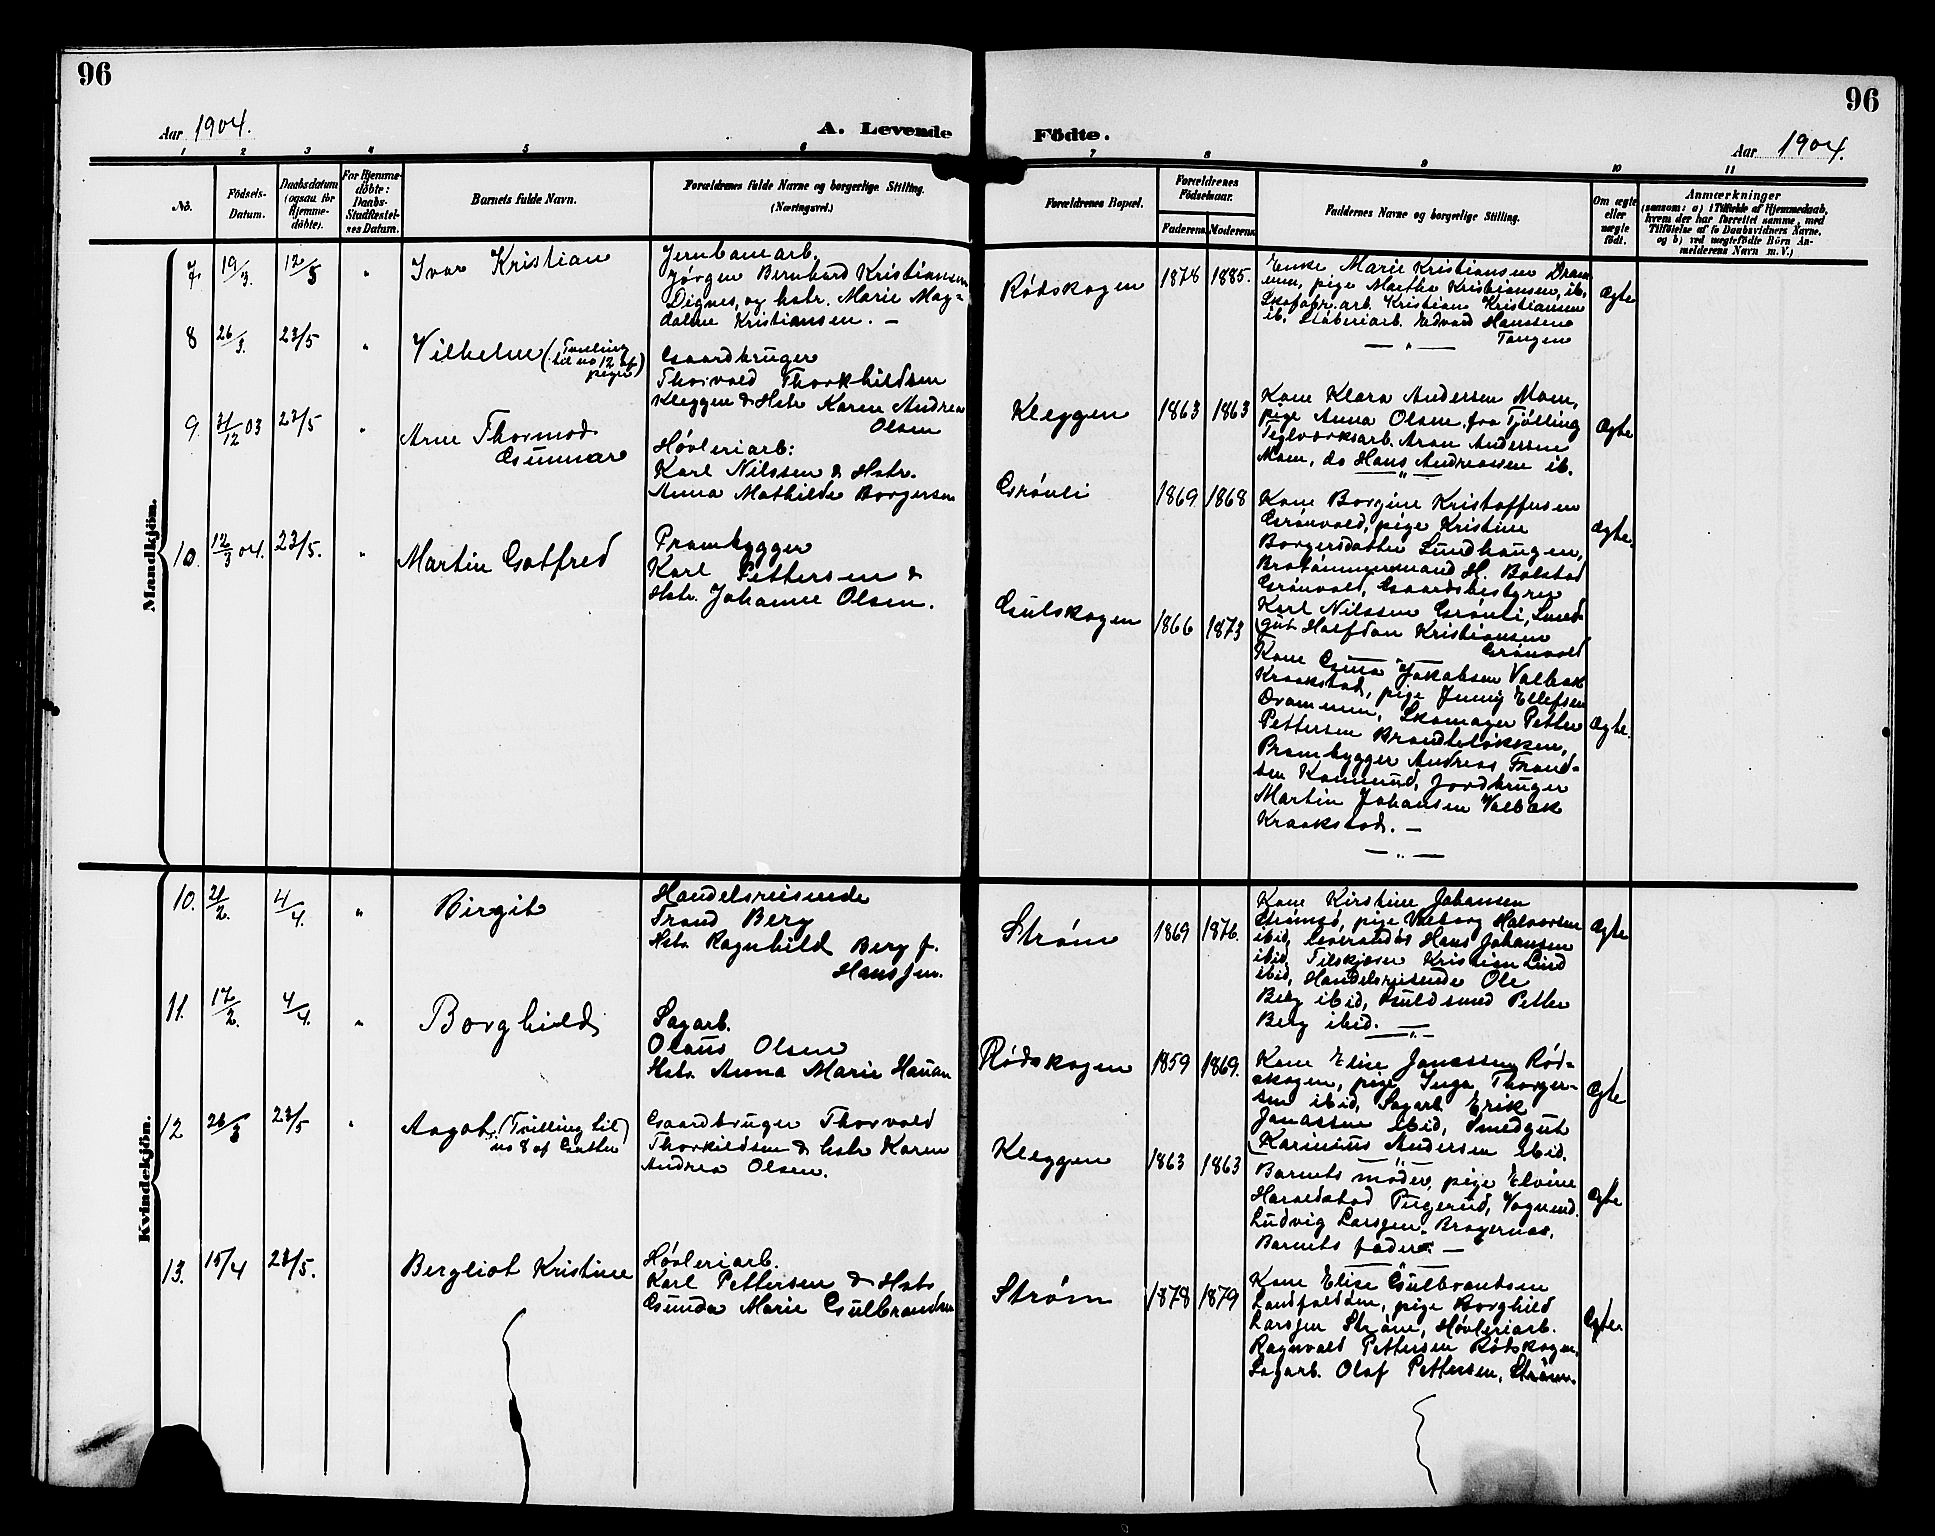 96
96
Aar 1904.
A. Levende
Födte.
Aar 1904.
1 2 3 4 5 6 7 8 9 10 11
No.
Födsels-
Datum.
Daabsdatum
(ogsaa for
Hjemme-
döbte).
For Hjemme-
döbte:
Daabs-
Stadfæstel-
ses Datum.
Barnets fulde Navn.
Forældrenes fulde Navne og borgerlige Stilling.
(Næringsvei.)
Forældrenes Bopæl.
Forældrenes
Födselsaar.
Faderens.
Moderens.
Faddernes Navne og borgerlige Stilling.
Om ægte
eller
uægte
födt.
Anmærkninger
(saasom: a) i Tilfælde af Hjemmedaab,
hvem der har forrettet samme, med
Tilföielse af to Daabsvidners Navne,
og b) ved uægtefödte Börn An-
melderens Navn m. V.)
Mandkjön.
7. 19/3. 12/5 " Ivar Kristian
Jernbanearb.
Jørgen Bernhard Kristiansen
Dignes, og hstr. Marie Mag-
dalene Kristiansen. —
Rødskogen 1878 1885.
Enke Marie Kristiansen Dram
men, pige Martha Kristiansen, ib.
Skofabr.arb. Kristian Kristiansen
ib. Støberiarb. Edvard Hanssen
Tangen
— " —
Ægte
8 26/3. 23/5 " Vilhelm (Tvilling
til no 12 af
piger)
Gaardbruger
Thorvald Thorkhildsen
Kleggen & Hstr Karen Andrea
Olsen
Kleggen 1863 1863
Kone Klara Andersen Moen,
pige Anna Olsen fra Tjølling
Teglværksarb. Aron Andersen
Moen, do Hans Andreassen ib.
— " —
Ægte
9. 31/12 03 23/5 " Arne Thormod
Gunnar
Høvleriarb:
Karl Nilssen & Hstr.
Anna Mathilde Borgersen
Grønli 1869 1868
Kone Borgine Kristoffersen
Grønvold, pige Kristine
Borgersdatter Lundhaugen,
Brotømmermand H. Bolstad
Grønvold, Gaardsbestyrer
Karl Nilssen Grønli, Smed-
gut Halfdan Kristiansen
Grønvold
— " —
Ægte.
10. 12/3 04. 23/5. " Martin Gotfred
Prambygger
Karl Pettersen &
Hstr. Johanne Olsen.
Gulskogen 1866 1873
Kone Gina Jakobsen Valbæk
Kraakstad, pige Jenny Ellefsen
Drammen, Skomager Petter
Pettersen Brandteløkken,
Prambygger Andreas Trond-
sen Konnerud, Jordbruger
Martin Johansen Valbæk
Kraakstad. —
— " —
Ægte.
Kvindekjön.
10. 21/2. 4/4. " Birgit
Handelsreisende
Trond Berg
Hstr. Ragnhild Berg f.
Hanssen.
Strøm 1869 1876.
Kone Kirstine Johansen
Strømsø, pige Valborg Halvorsen
ibid, Hans Johansen
ibid, Tilskjærer Kristian Lind
ibid, Handelsreisende Ole
Berg ibid, Guldsmed Petter
Berg ibid. —
— " —
Ægte
11. 17/2. 4/4. " Borghild
Sagarb.
Olaus Olsen
Hstr. Anna Marie Hauan
Rødskogen 1859 1869.
Kone Elise Jonassen Rød-
skogen, pige Inga Thorger-
sen ibid, Sagarb. Erik
Jonassen ibid, Smedgut
Karinius Andersen ibid.
— " —
Ægte
12 26/3 23/5 " Aagot (Tvilling til
no 8 af Gutter)
Gaardbruger Thorvald
Thorkildsen & hstr Karen
Andrea Olsen.
Kleggen 1863 1863
Barnets moder, pige Elvine
Haraldstad Pugerud, Vognmd.
Ludvig Larsen Bragernæs,
Barnets fader. —
— " —
Ægte
13. 15/4 23/5. Bergliot Kristine
Høvleriarb.
Karl Pettersen & Hstr
Gunda Marie Gulbrandsen
Strøm 1878 1879
Kone Elise Gulbrandsen
Landfaldøen, pige Borghild
Larsen Strøm, Høvleriarb.
Ragnvald Pettersen Rødskogen,
Sagarb. Olaf Pettersen, Strøm.
Ægte